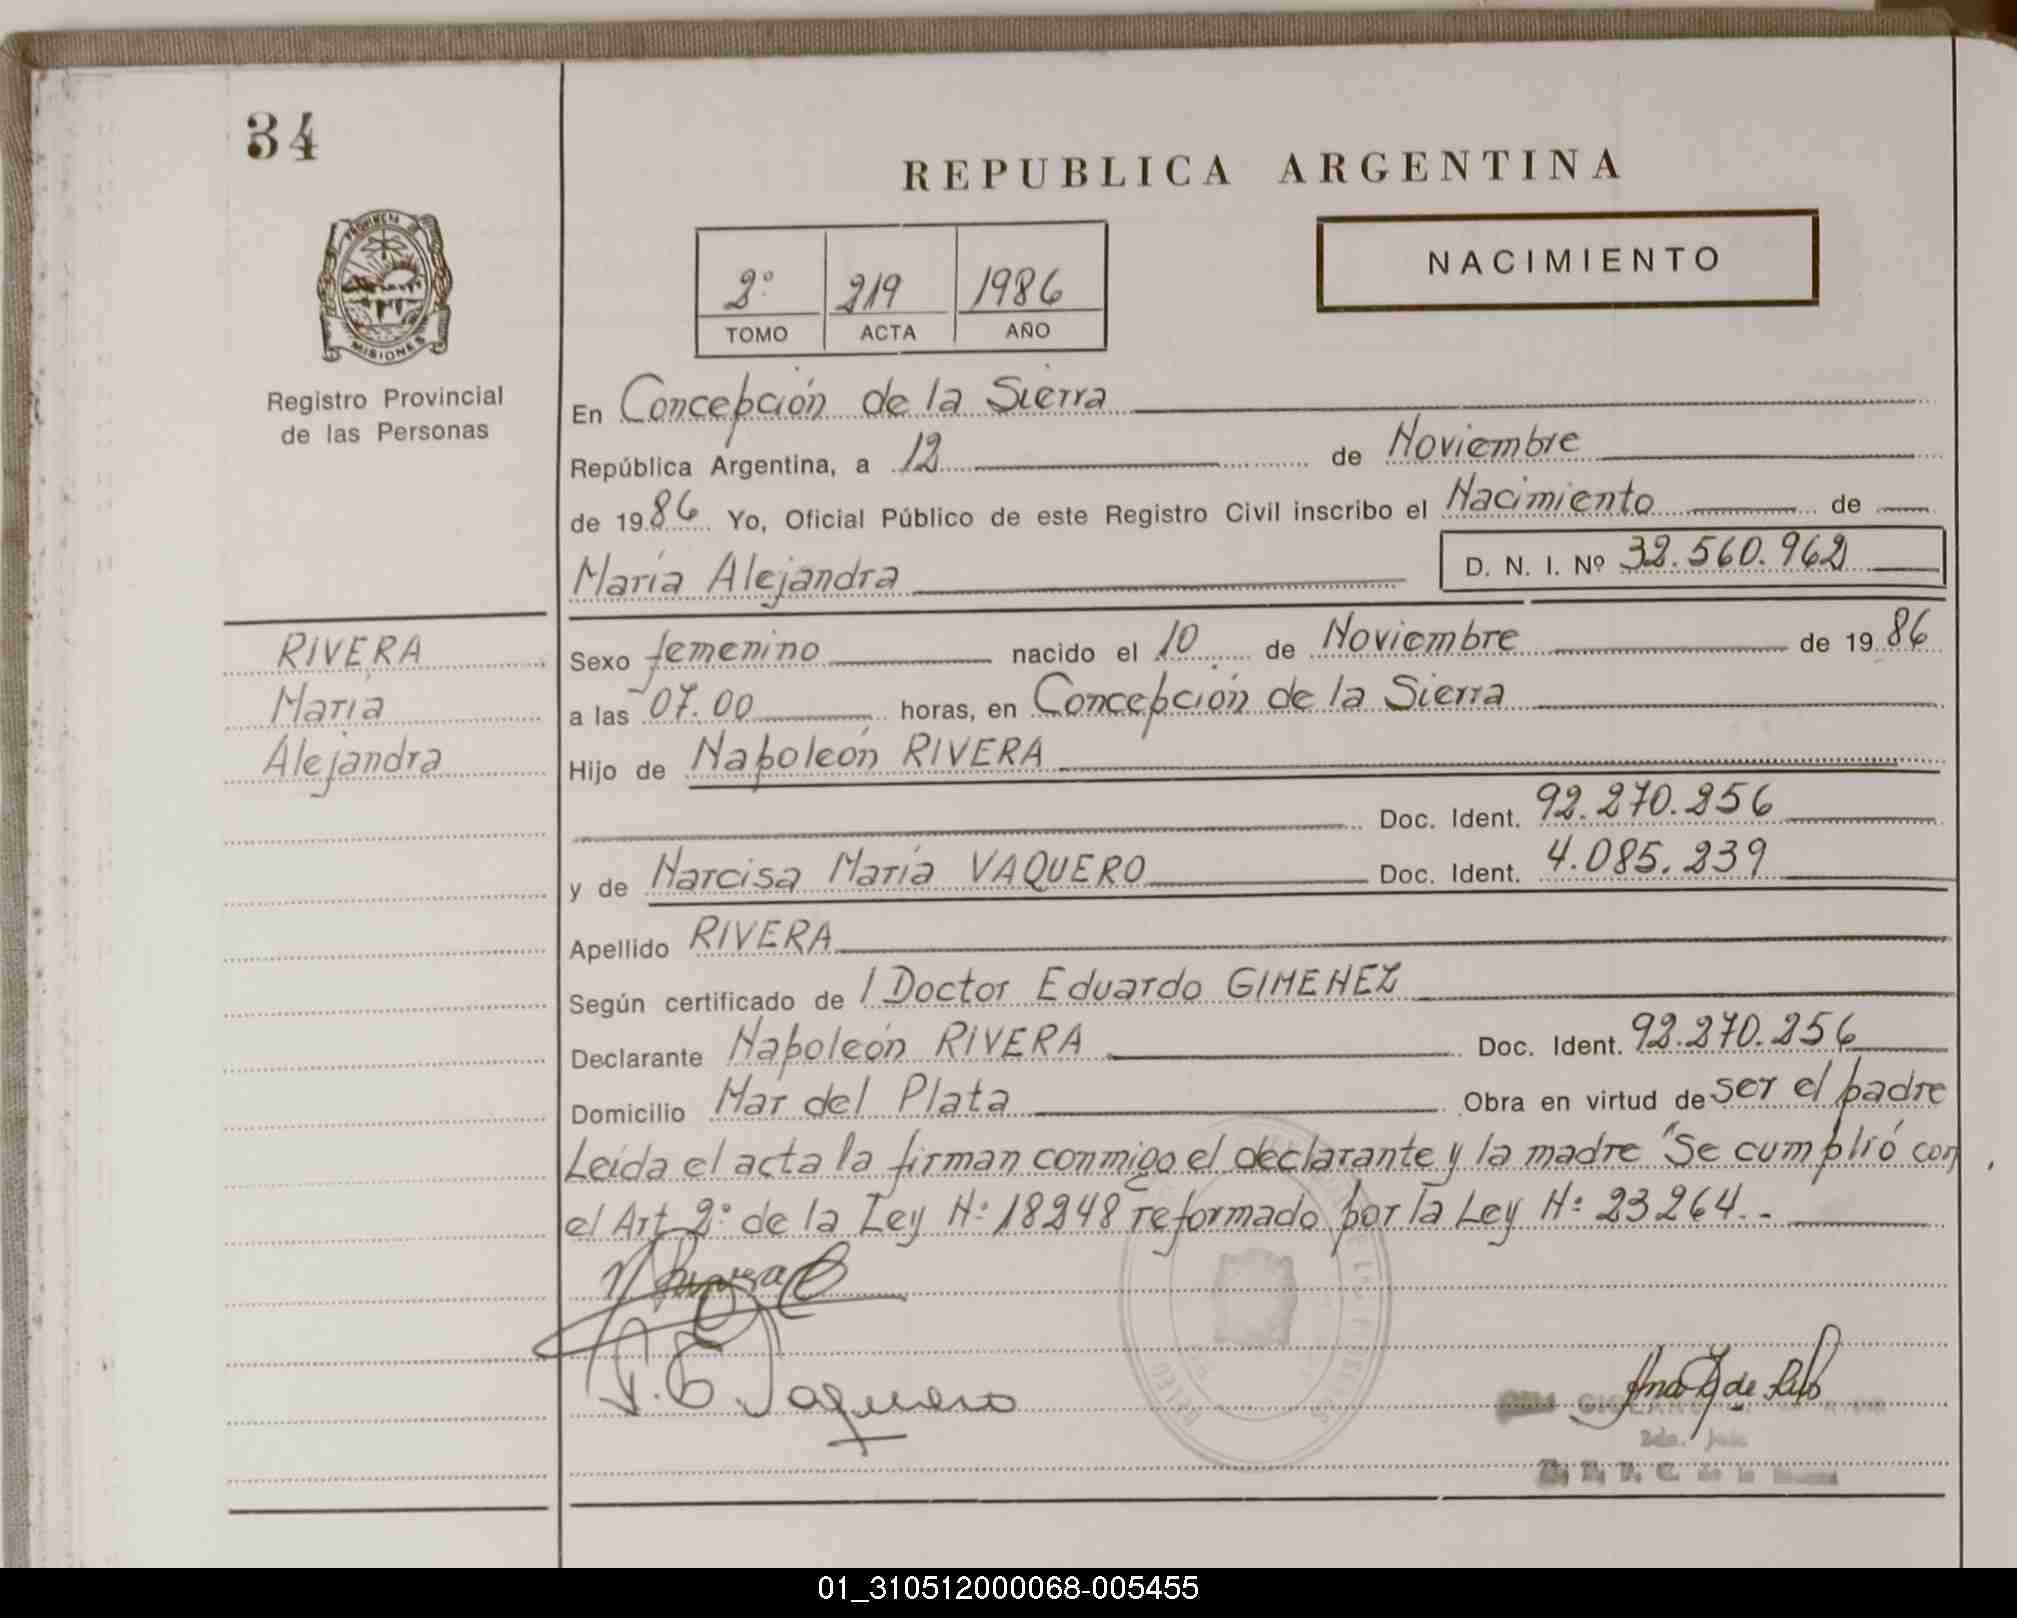 34
REPUBLICA ARGENTINA
PROVINCIA DE
MISIONES
Registro Provincial
de las Personas
NACIMIENTO
2º 219 1986
TOMO ACTA AÑO
En Concepción de la Sierra
República Argentina, a 12 de Noviembre
de 1986 Yo, Oficial Público de este Registro Civil inscribo el Nacimiento de
María Alejandra D. N. I. Nº 32.560.962
RIVERA
María
Alejandra
Sexo femenino nacido el 10 de Noviembre de 1986
a las 07.00 horas, en Concepción de la Sierra
Hijo de Napoleón RIVERA
Doc. Ident. 92.270.256
y de Narcisa María VAQUERO Doc. Ident. 4.085.239
Apellido RIVERA
Según certificado de l Doctor Eduardo GIMENEZ
Declarante Napoleón RIVERA Doc. Ident. 92.270.256
Domicilio Mar del Plata Obra en virtud de ser el padre
Leída el acta la firman conmigo el declarante y la madre "Se cumplió con
el Art 2º de la Ley N: 18248 reformado por la Ley N: 23264.-
Vaquero
de la
01_310512000068-005455